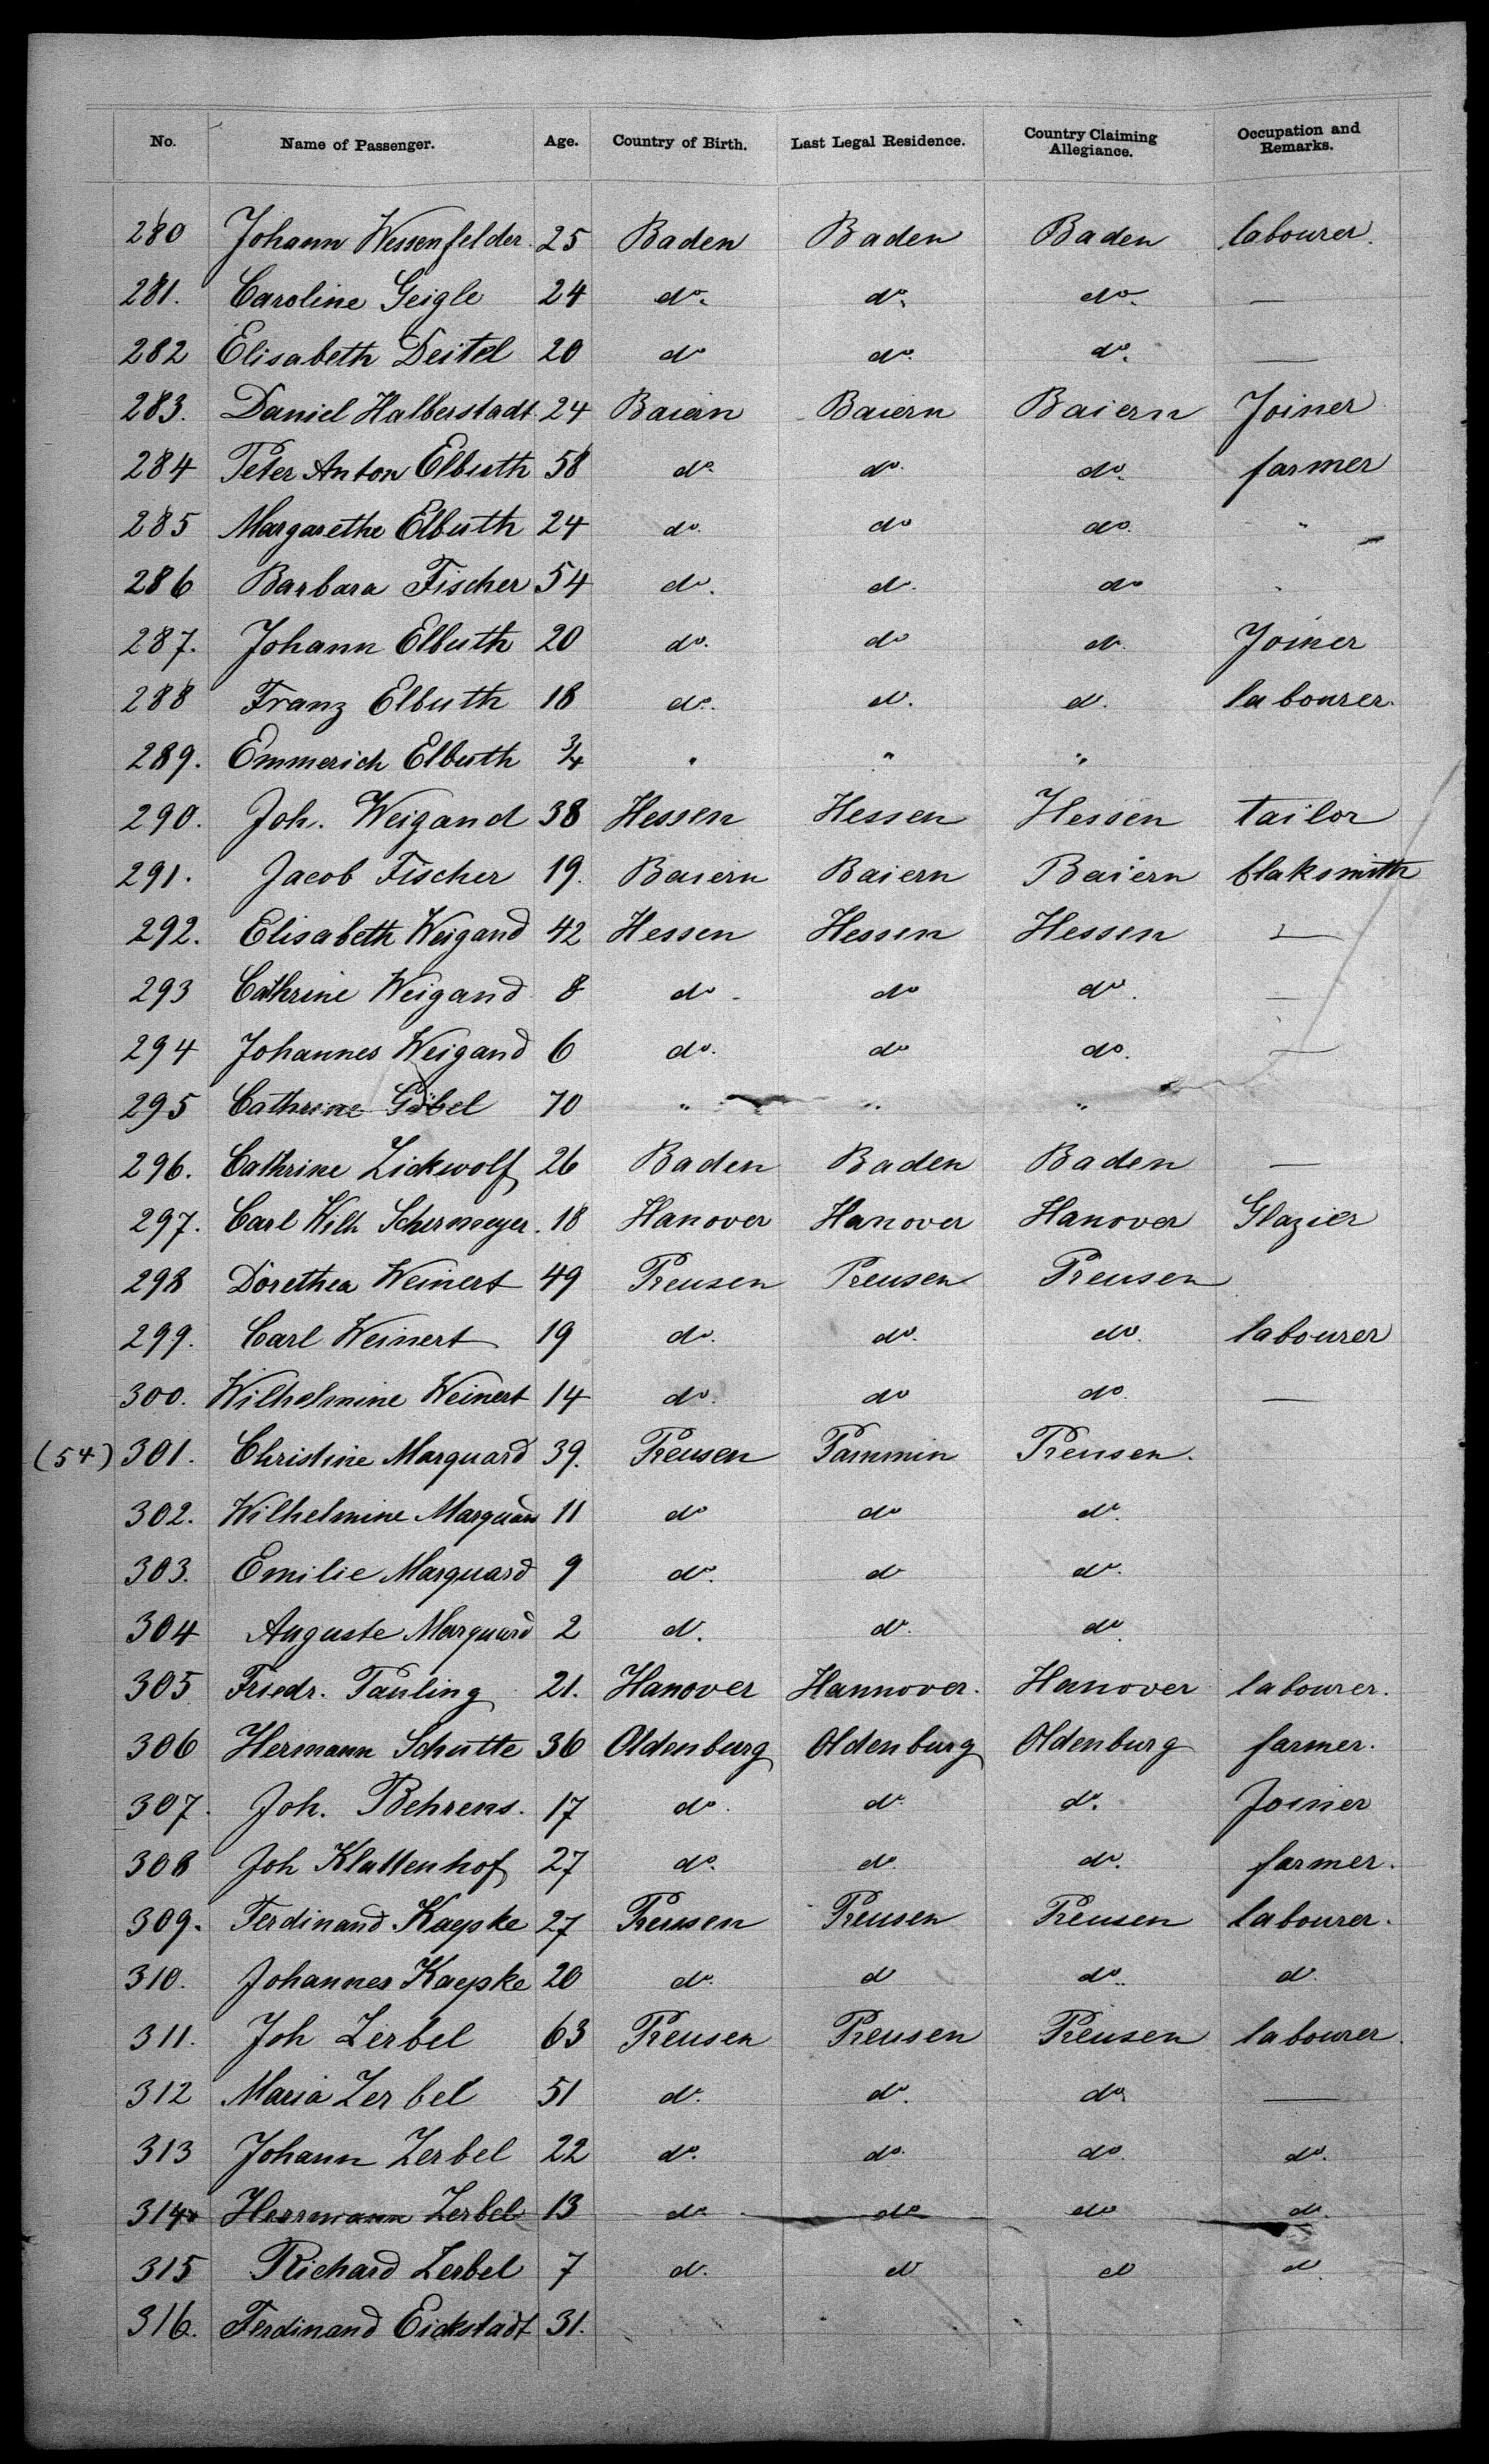 No. Name of Passenger. Age. Country of Birth. Last Legal Residence. Country Claiming Allegiance. Occupation and Remarks.
280 Johann Wessenfelder. 25 Baden Baden Baden labourer.
281. Caroline Geigle 24 do. do. do. —
282 Elisabeth Deitel 20 do do. do. —
283. Daniel Halberstadt 24 Baiern Baiern Baiern Joiner
284 Peter Anton Elbuth 58 do. do. do. farmer
285 Margarethe Elbuth 24 do. do do. "
286 Barbara Fischer 54 do. do. do "
287. Johann Elbuth 20 do. do do. Joiner
288 Franz Elbuth 18 do. do. do. labourer.
289. Emmerich Elbuth 3/4 " " "
290. Joh. Weigand 38 Hessen Hessen Hessen tailor
291. Jacob Fischer 19. Baiern Baiern Baiern blaksmith
292. Elisabeth Weigand 42 Hessen Hessen Hessen —
293 Cathrine Weigand 8 do - do do. —
294 Johannes Weigand 6 do. do do. —
295 Cathrine Göbel 70 " " "
296. Cathrine Zickwolf 26 Baden Baden Baden —
297. Carl Wilh Schermeyer. 18 Hanover Hanover Hanover Glazier
298 Dorethea Weinert 49 Preusen Preusen Preusen
299. Carl Weinert 19 do. do. do. labourer
300. Wilhelmine Weinert 14 do. do do. —
(54) 301. Christine Marquard 39. Preusen Pammin Preusen.
302. Wilhelmine Marquard 11 do do do.
303. Emilie Marquard 9 do. do do.
304 Auguste Marquard 2 do. do. do.
305 Friedr. Pauling 21. Hanover Hannover. Hanover labourer.
306 Hermann Schutte 36 Oldenburg Oldenburg Oldenburg farmer.
307. Joh. Behrens. 17 do. do. do. Joiner
308 Joh Klattenhof 27 do. do. do. farmer.
309. Ferdinand Kaepke 27 Preussen Preusen Preusen labourer.
310. Johannes Kaepke 20 do. do do. do.
311. Joh Zerbel 63 Preusen Preusen Preusen labourer.
312 Maria Zerbel 51 do. do. do —
313 Johann Zerbel 22 do. do. do. do.
314. Herrmann Zerbel 13 do. do do do.
315 Richard Zerbel 7 do. do do do.
316. Ferdinand Eickstädt 31.